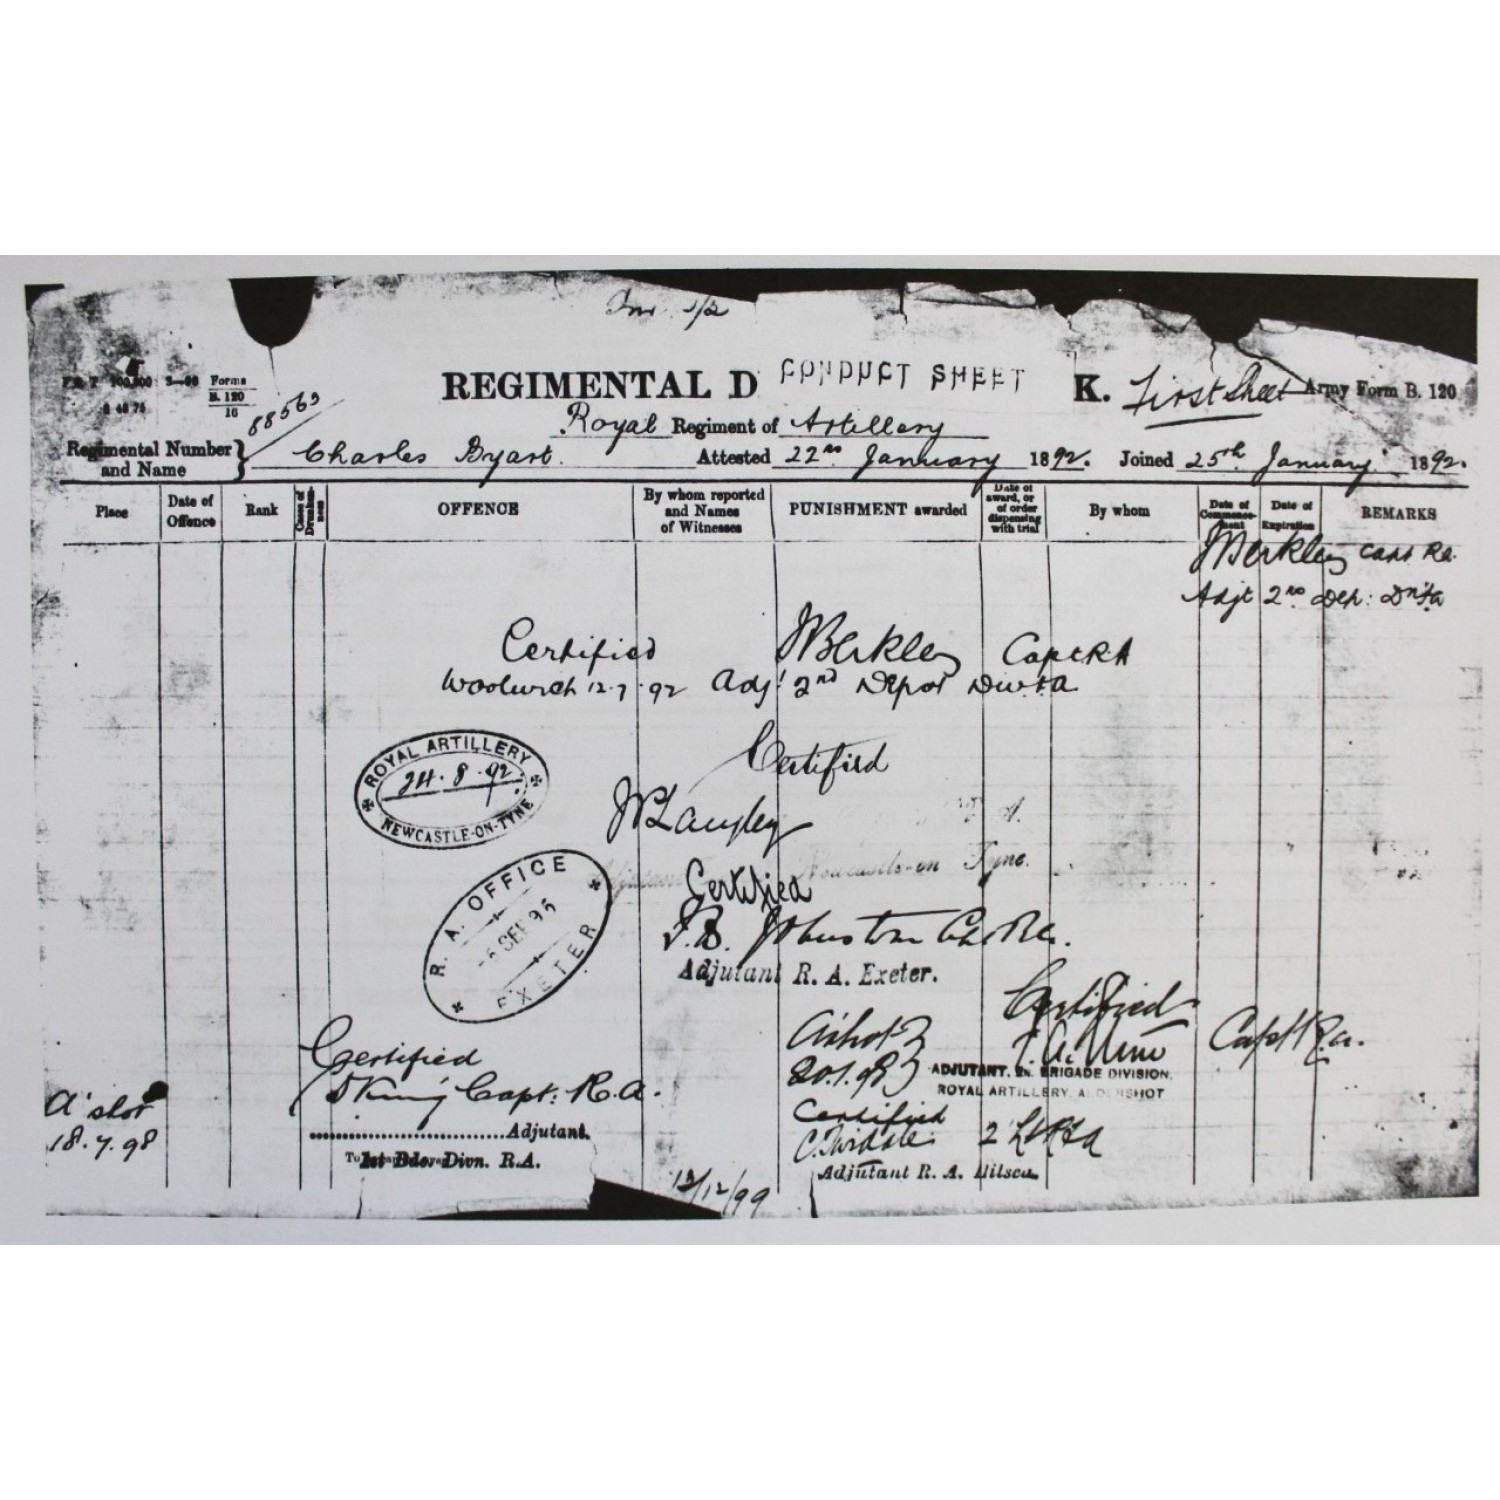 REGIMENTAL D CONDUCT SHEET K. First Sheet Army Form B. 120
Forms
B. 120
16
88563
Royal Regiment of Artillery
Regimental Number
and Name } Charles Byart. Attested 22nd January 1892. Joined 25th January 1892.
Place
Date of
Offence
Rank
Cases of
Drunken-
ness
OFFENCE
By whom reported
and Names
of Witnesses
PUNISHMENT awarded
Date of
award, or
of order
dispensing
with trial
By whom
Date of
Commence-
ment
Date of
Expiration
REMARKS
JBerkley Capt RA.
Adjt 2nd Dep:
Certified JBerkley Capt RA
Woolwich 12.7.92 Adjt 2nd Depot
ROYAL ARTILLERY
24.8.92
NEWCASTLE-ON-TYNE
Certified
Langley
Newcastle-on Tyne.
R. A. OFFICE
EXETER
Certified
Johnston
Adjutant R. A. Exeter.
Certified
Capt R.A.
20.1.98
ADJUTANT. BRIGADE DIVISION,
ROYAL ARTILLERY, ALDERSHOT
Certified
King Capt: R.A.
Adjutant.
Divn. R.A.
A'shot
18.7.98
Certified
Adjutant R. A.
12/99